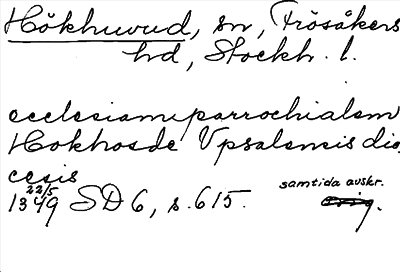 Hökhuvud, sn, Frösåkers
hd, Stockh. l.
ecclesiam parrochialem
Hokhosde Vpsalensis dio,
cesis
1349 22/5 SD 6, s. 615. samtida avskr.
orig.